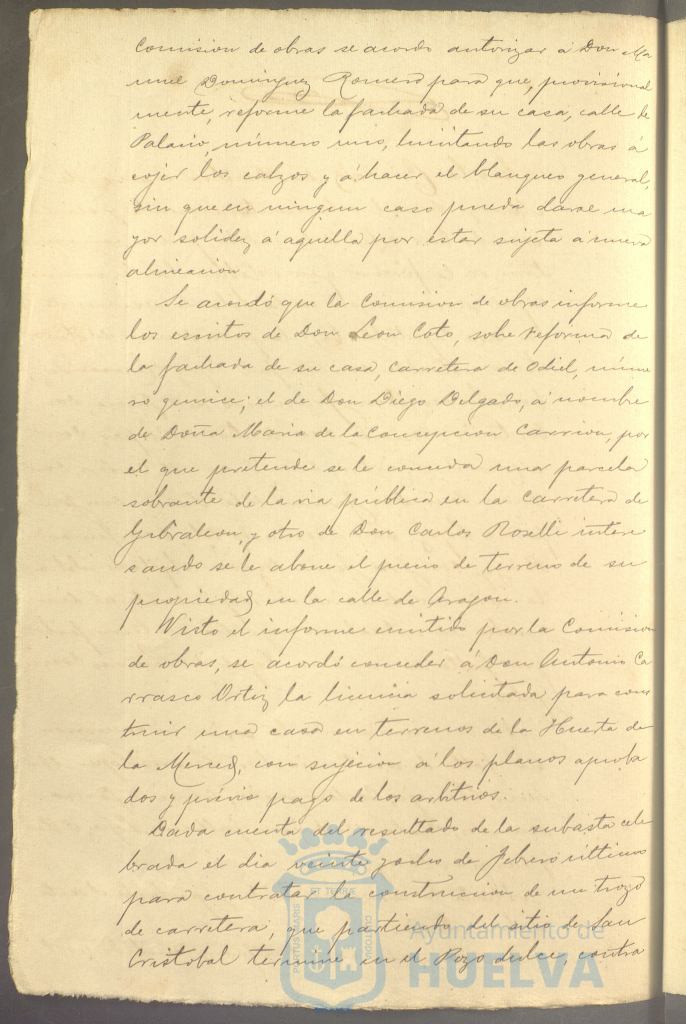 Comision de obras se acordo autorizar á Don Ma
nuel Dominguez Romero para que, provisional
mente, reforme la fachada de su casa, calle de
Palacio, número uno, limitando las obras á
cojer los calzos y á hacer el blanqueo general,
sin que en ningun caso pueda darse ma
yor solidez á aquella por estar sujeta á nueva
alineacion
Se acordó que la Comision de obras informe
los escritos de Don Leon Coto, sobre reforma de
la fachada de su casa, Carretera de Odiel, núme
ro quince; el de Don Diego Delgado, á nombre
de Doña Maria de la Concepcion Carrion, por
el que pretende se le conceda una parcela
sobrante de la via pública en la Carretera de
Gibraleon, y otro de Don Carlos Roselli intere
sando se le abone el precio de terreno de su
propiedad en la calle de Aragon.
Visto el informe emitido por la Comision
de obras, se acordó conceder á Don Antonio Ca
rrasco Ortiz la licencia solicitada para cons
truir una casa en terrenos de la Huerta de
la Merced, con sujecion á los planos aproba
dos y prévio pago de los arbitrios.
Dada cuenta del resultado de la subasta cele
brada el dia veinte y ocho de Febrero último
para contratar la construccion de un trozo
de carretera, que partiendo del sitio de San
Cristobal termine en el Pozo dulce, contra
PORTUS MARIS ET TERRAE CUSTODIA
Ayuntamiento de
HUELVA